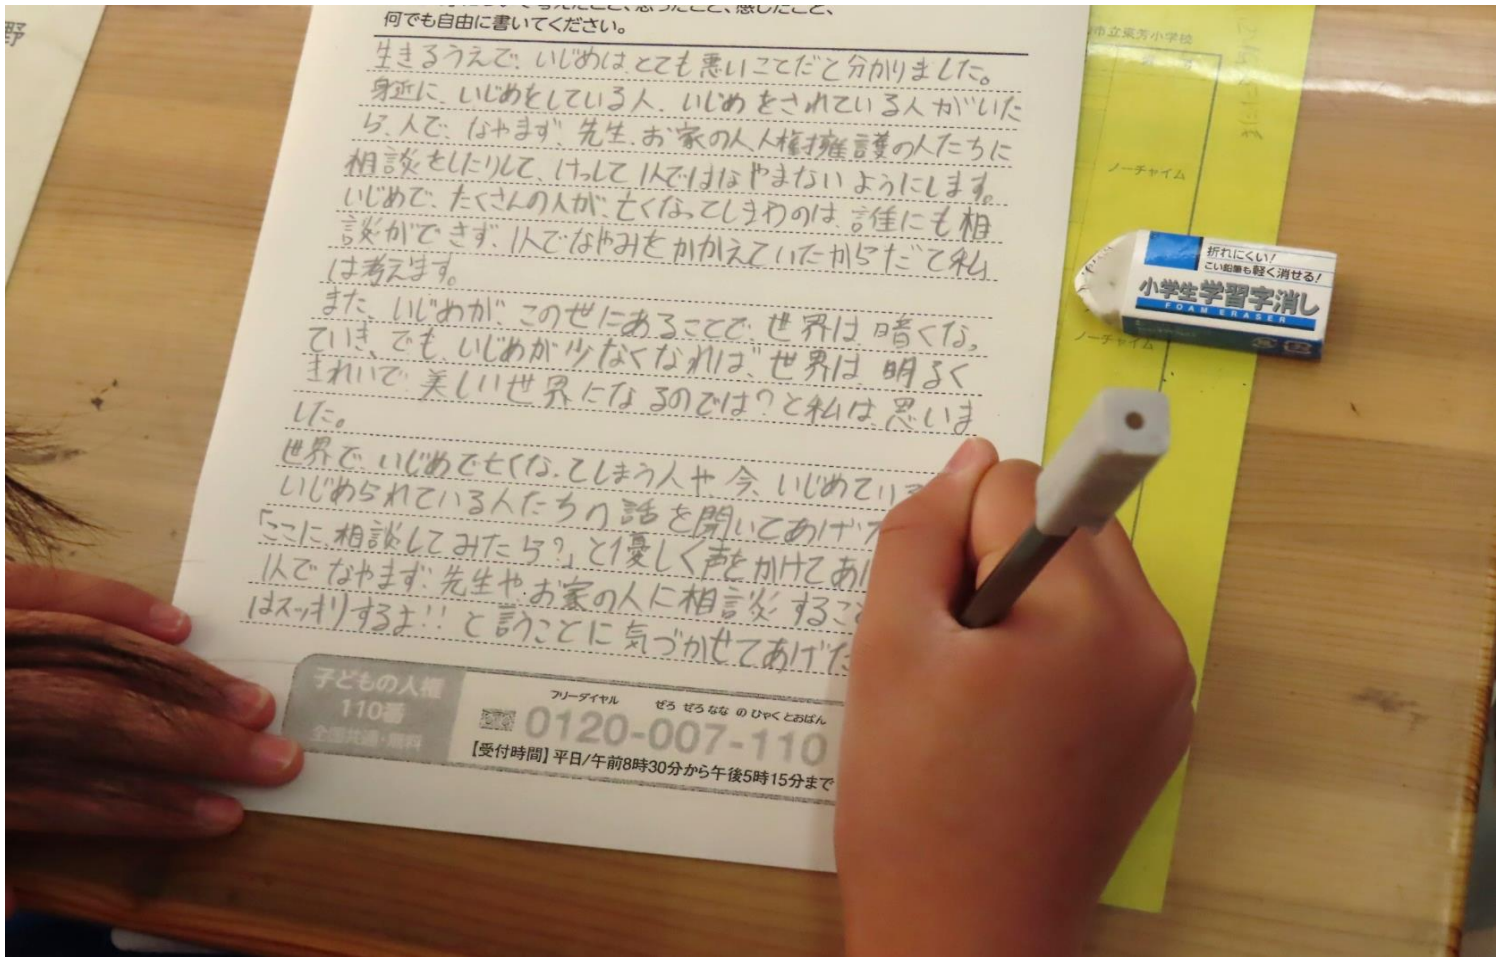 野
何でも自由に書いてください。
生きるうえで、いじめは、とても悪いことだと分かりました。
身近に、いじめをしている人、いじめをされている人がいた
ら、人で、なやまず、先生、お家の人、人権擁護の人たちに
相談をしたりして、けっして1人ではなやまないようにします。
いじめで、たくさんの人が、亡くなってしまうのは、誰にも相
談ができず、1人でなやみをかかえていたからだて私
は考えます。
また、いじめが、この世にあることで、世界は、暗くなっ
ていき、でも、いじめが少なくなれば、世界は、明るく
きれいで、美しい世界になるのでは?と私は、思いま
した。
世界で、いじめで亡くなってしまう人や、今、いじめている
いじめられている人たちの話を聞いてあげ
「ここに、相談してみたら?」と優しく声をかけてあげ
1人でなやまず、先生や、お家の人に相談するこ
はスッキリするよ!!と言うことに気づかせてあげた
子どもの人権
110番
全国共通・無料
フリーダイヤル
ぜろ ぜろ なな の ひゃく とおばん
0120-007-110
【受付時間】平日/午前8時30分から午後5時15分まで
市立東芳小学校
ノーチャイム
ノーチャイム
折れにくい!
こい鉛筆も軽く消せる!
小学生学習字消し
FOAM ERASER